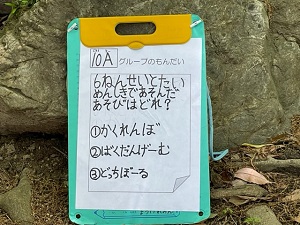 10A グループのもんだい
6ねんせいとたい
めんしきであそんだ
あそびはどれ?
①かくれんぼ
②ばくだんげーむ
③どっちぼーる